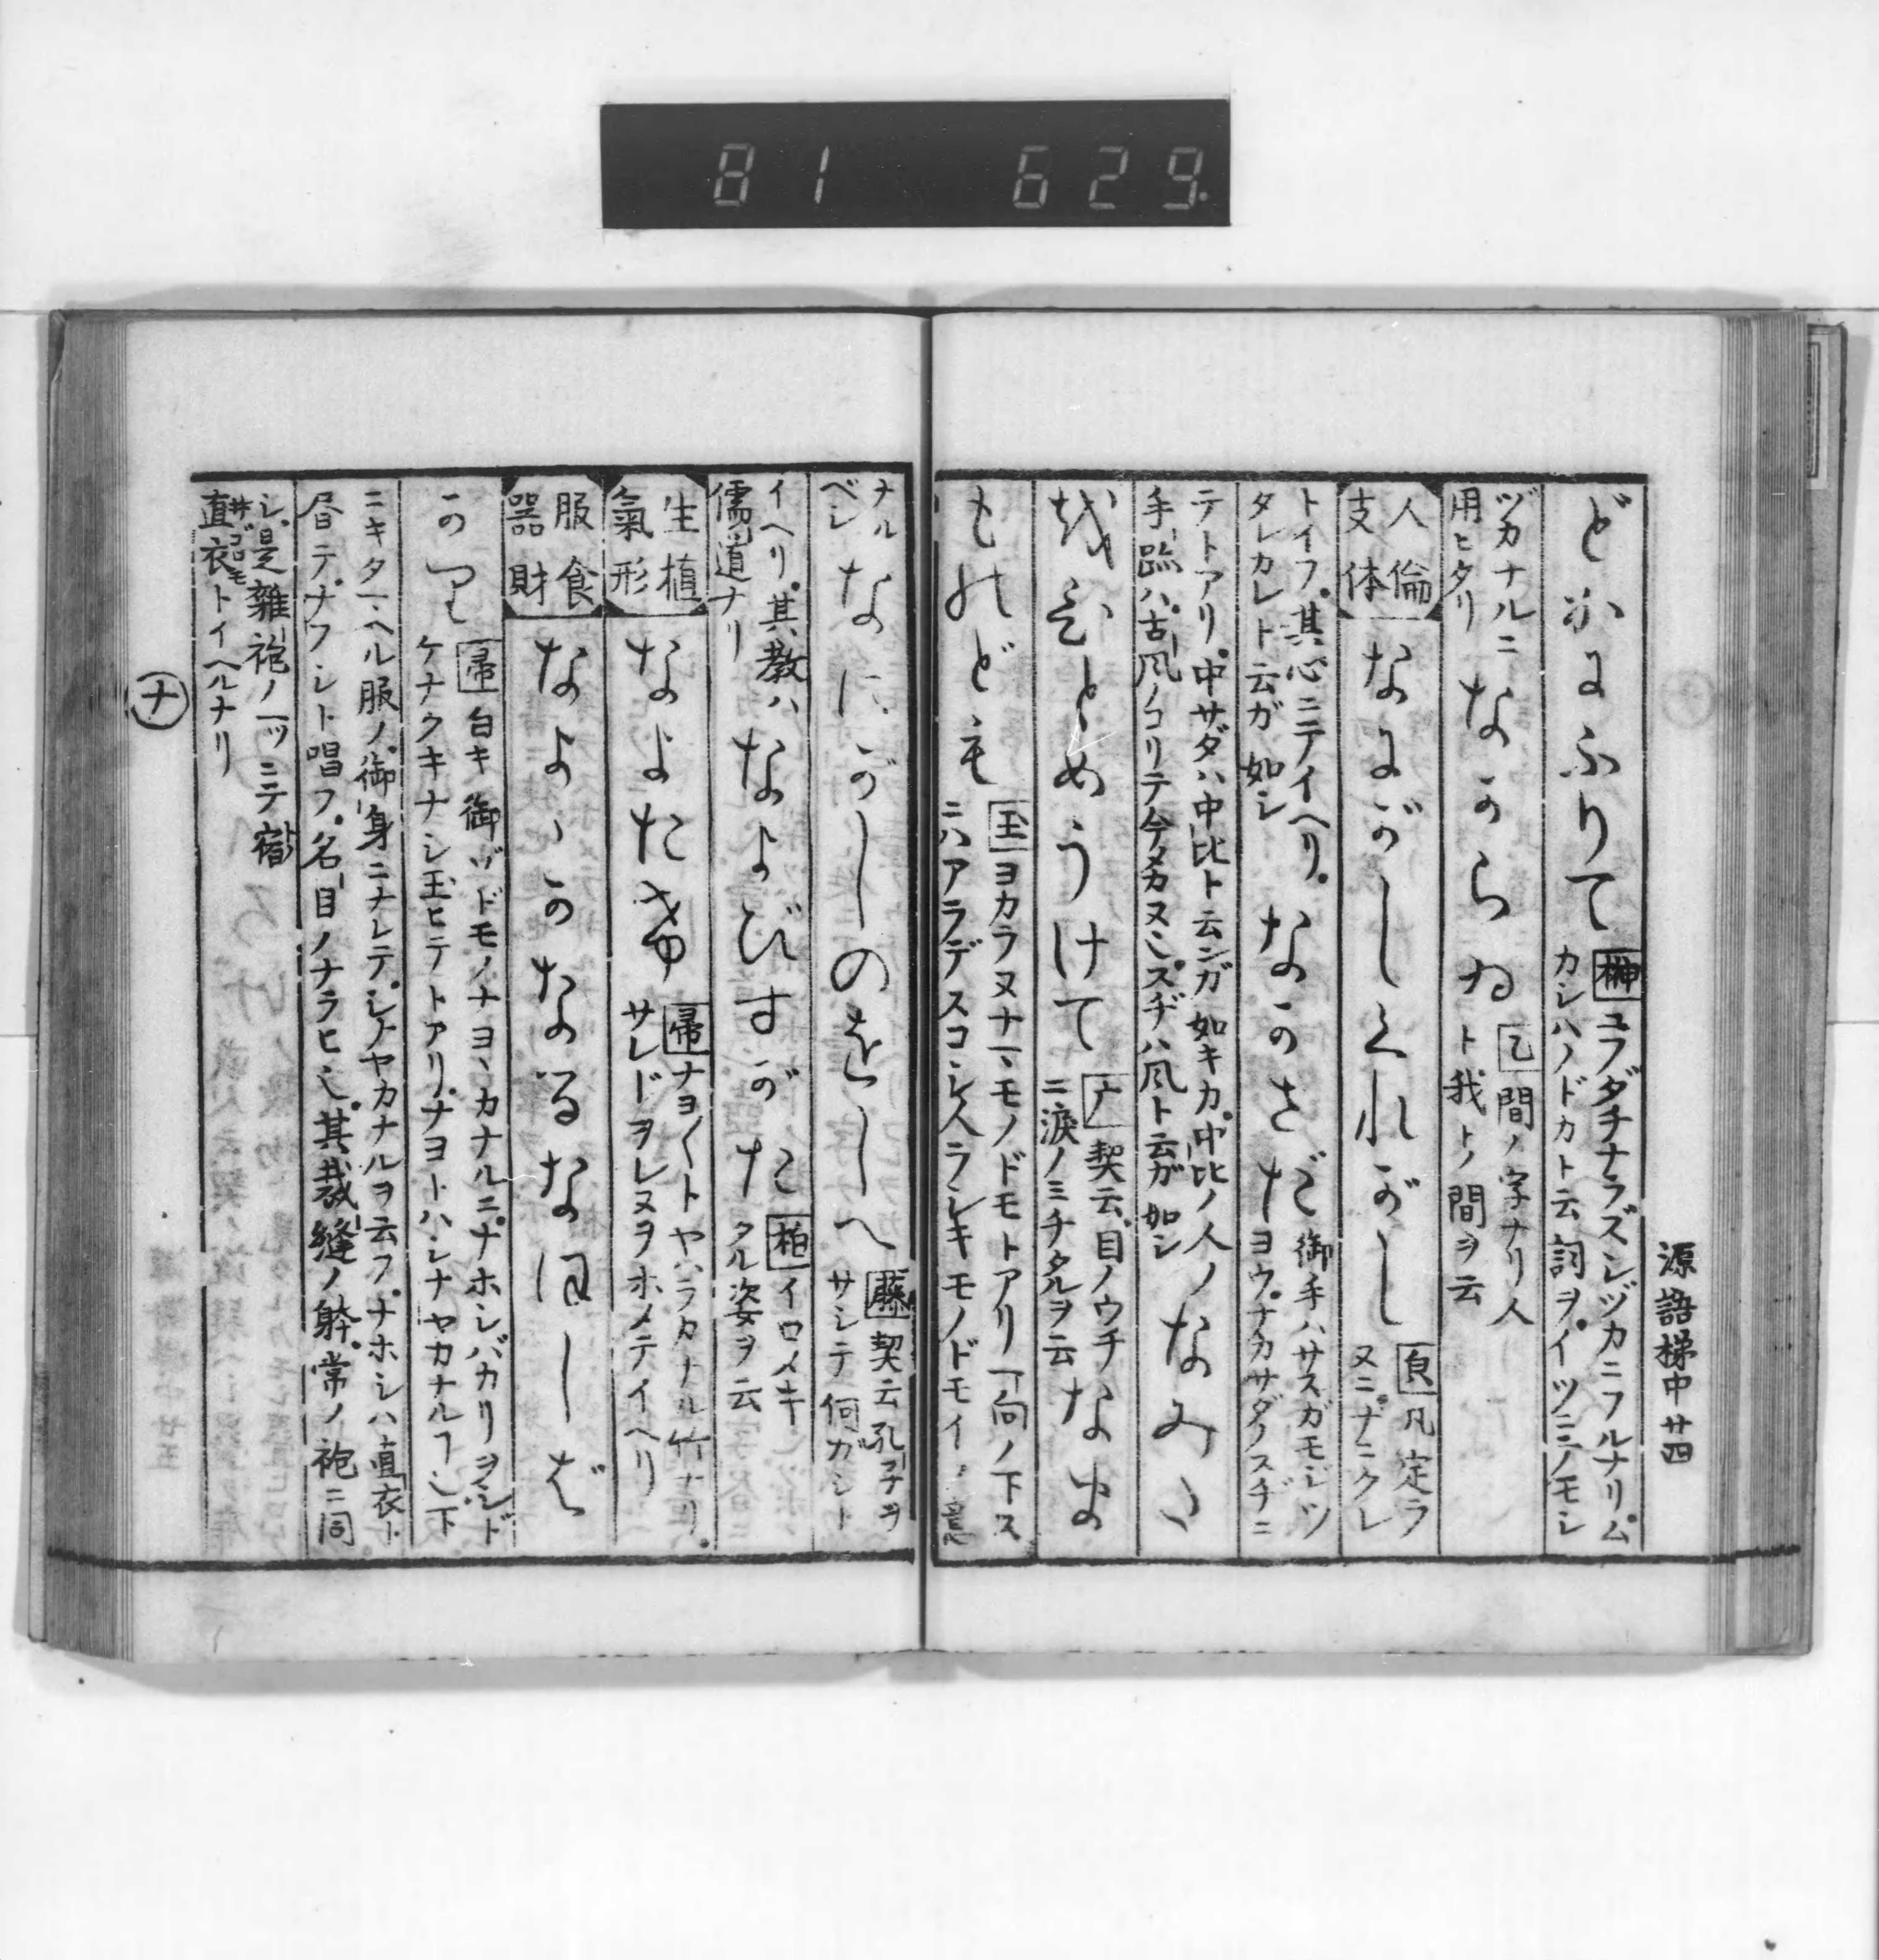 81 629
源語梯中 廿四
どかにふりて 榊 ユフダチナラズシヅカニフルナリ。ム
カシハノドカト云詞ヲ。イツミニノモシ
ヅカナルニ
用ヒタリ
なからゐ 乙 間ノ字ナリ人
ト我トノ間ヲ云
人倫
支体
なにがしくれがし 良 凡定ラ
ヌニ。ナニクレ
トイフ。其心ニテイヘリ。
タレカレト云ガ如シ
なかさだ 御手ハサスガモジツ
ヨウ。ナカサダノスヂニ
テトアリ。中サダハ中比ト云ンガ如キカ。中比ノ人ノ
手跡ハ。古風ノコリテ今メカヌ也。スヂハ風ト云ガ如シ
なみだ
をひとめうけて ナ 契云。目ノウチ
ニ涙ノミチタルヲ云
なま
ものども 玉 ヨカラヌナマモノドモトアリ一向ノ下ス
ニハアラデスコシ人ラシキモノドモイ
ナル
ベシ
なにがしのをしへ 藤 契云孔子ヲ
サシテ何ガシト
イヘリ。其教ハ
儒道ナリ
なよびすがた 柏 イロメキ
タル姿ヲ云
生植
氣形
なよたけ 帚 ナヨ〱トヤハラカナル竹ナリ。
サレドヲレヌヲホメテイヘリ
服食
器財
なよゝかなるなほしば
かり 帚 白キ御ゾドモノナヨヽカナルニ。ナホシバカリヲシド
ケナクキナシ玉ヒテトアリ。ナヨトハシナヤカナルヿ也下
ニキタマヘル服ノ。御身ニナレテ。シナヤカナルヲ云フ。ナホシハ直衣ト
昏テ。ナフシト唱フ。名目ノナラヒ也。其裁縫ノ躰。常ノ袍ニ同
シ。是雜袍ノ一ツニテ宿
直衣トイヘルナリ
ナ